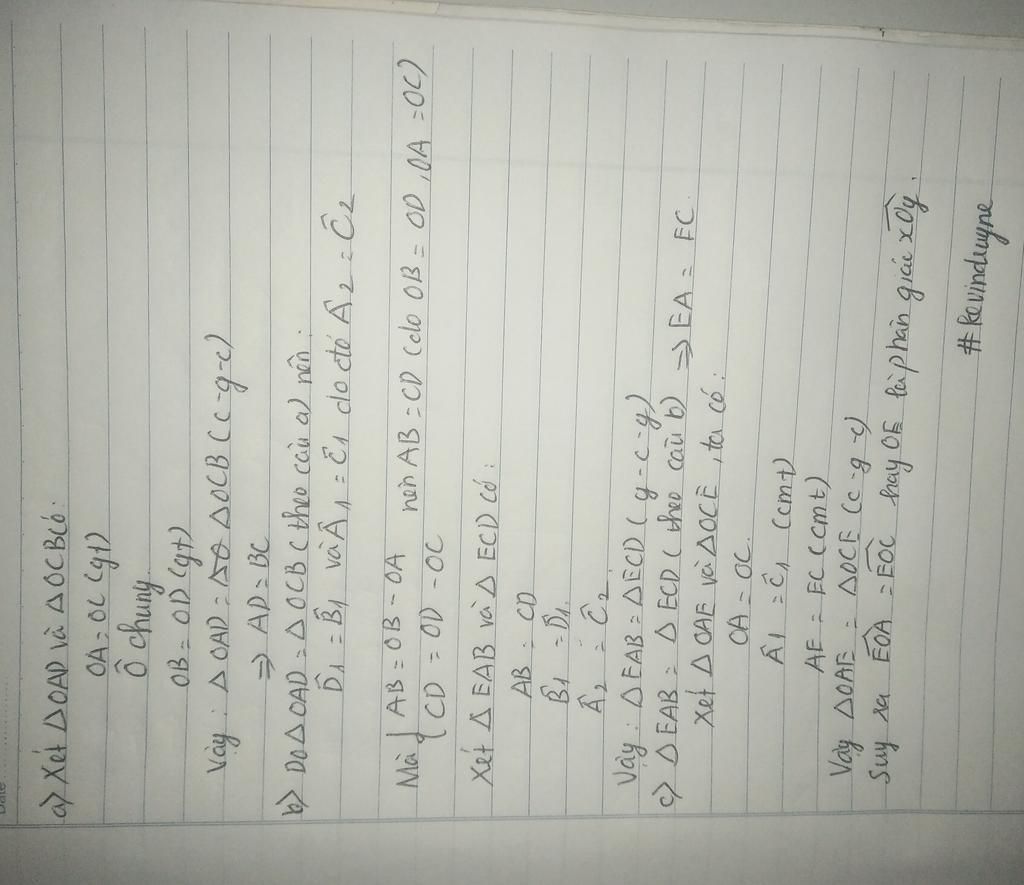 Date
a) Xét ΔOAD và ΔOCB có:
OA = OC (gt)
Ô chung
OB = OD (gt)
Vậy: ΔOAD = ΔOCB (c-g-c)
=> AD = BC
b) Do ΔOAD = ΔOCB (theo câu a) nên:
D̂1 = B̂1 và Â1 = Ĉ1 do đó Â2 = Ĉ2
Mà { AB = OB - OA nên AB = CD (do OB = OD, OA = OC)
CD = OD - OC
Xét ΔEAB và ΔECD có:
AB = CD
B̂1 = D̂1
Â2 = Ĉ2
Vậy: ΔEAB = ΔECD (g-c-g)
c) ΔEAB = ΔECD (theo câu b) => EA = EC.
Xét ΔOAE và ΔOCE, ta có:
OA = OC
Â1 = Ĉ1 (cmt)
AE = EC (cmt)
Vậy ΔOAE = ΔOCE (c-g-c)
Suy ra EOA = EOC hay OE là phân giác xOy.
#kevinduyne